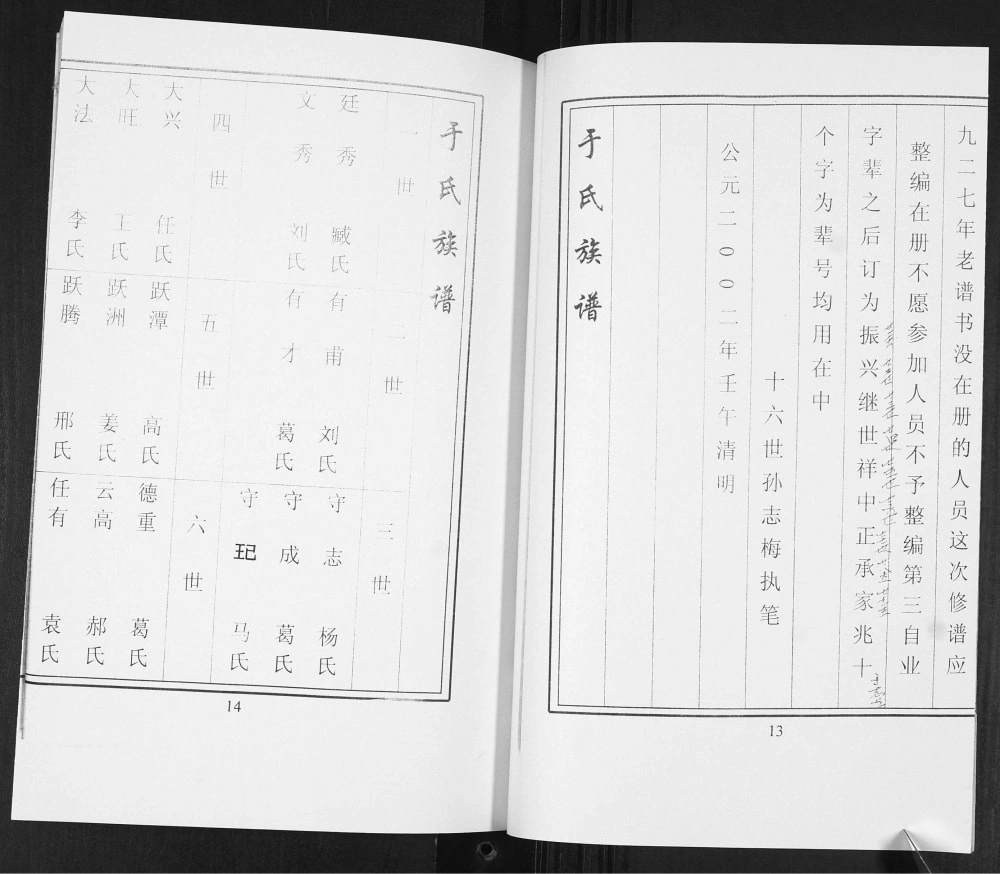 九二七年老谱书没在册的人员这次修谱应
整编在册不愿参加人员不予整编第三自业
字辈之后订为振兴继世祥中正承家兆十
个字为辈号均用在中
十六世孙志梅执笔
公元二〇〇二年壬午清明
于氏族谱
13
于氏族谱
一世
廷秀 臧氏
文秀 刘氏
二世
有甫 刘氏
有才 葛氏
三世
守志 杨氏
守成 葛氏
守玘 马氏
四世
大兴 任氏
大旺 王氏
大法 李氏
五世
跃潭 高氏
跃洲 姜氏
跃腾 邢氏
六世
德重 葛氏
云高 郝氏
任有 袁氏
14